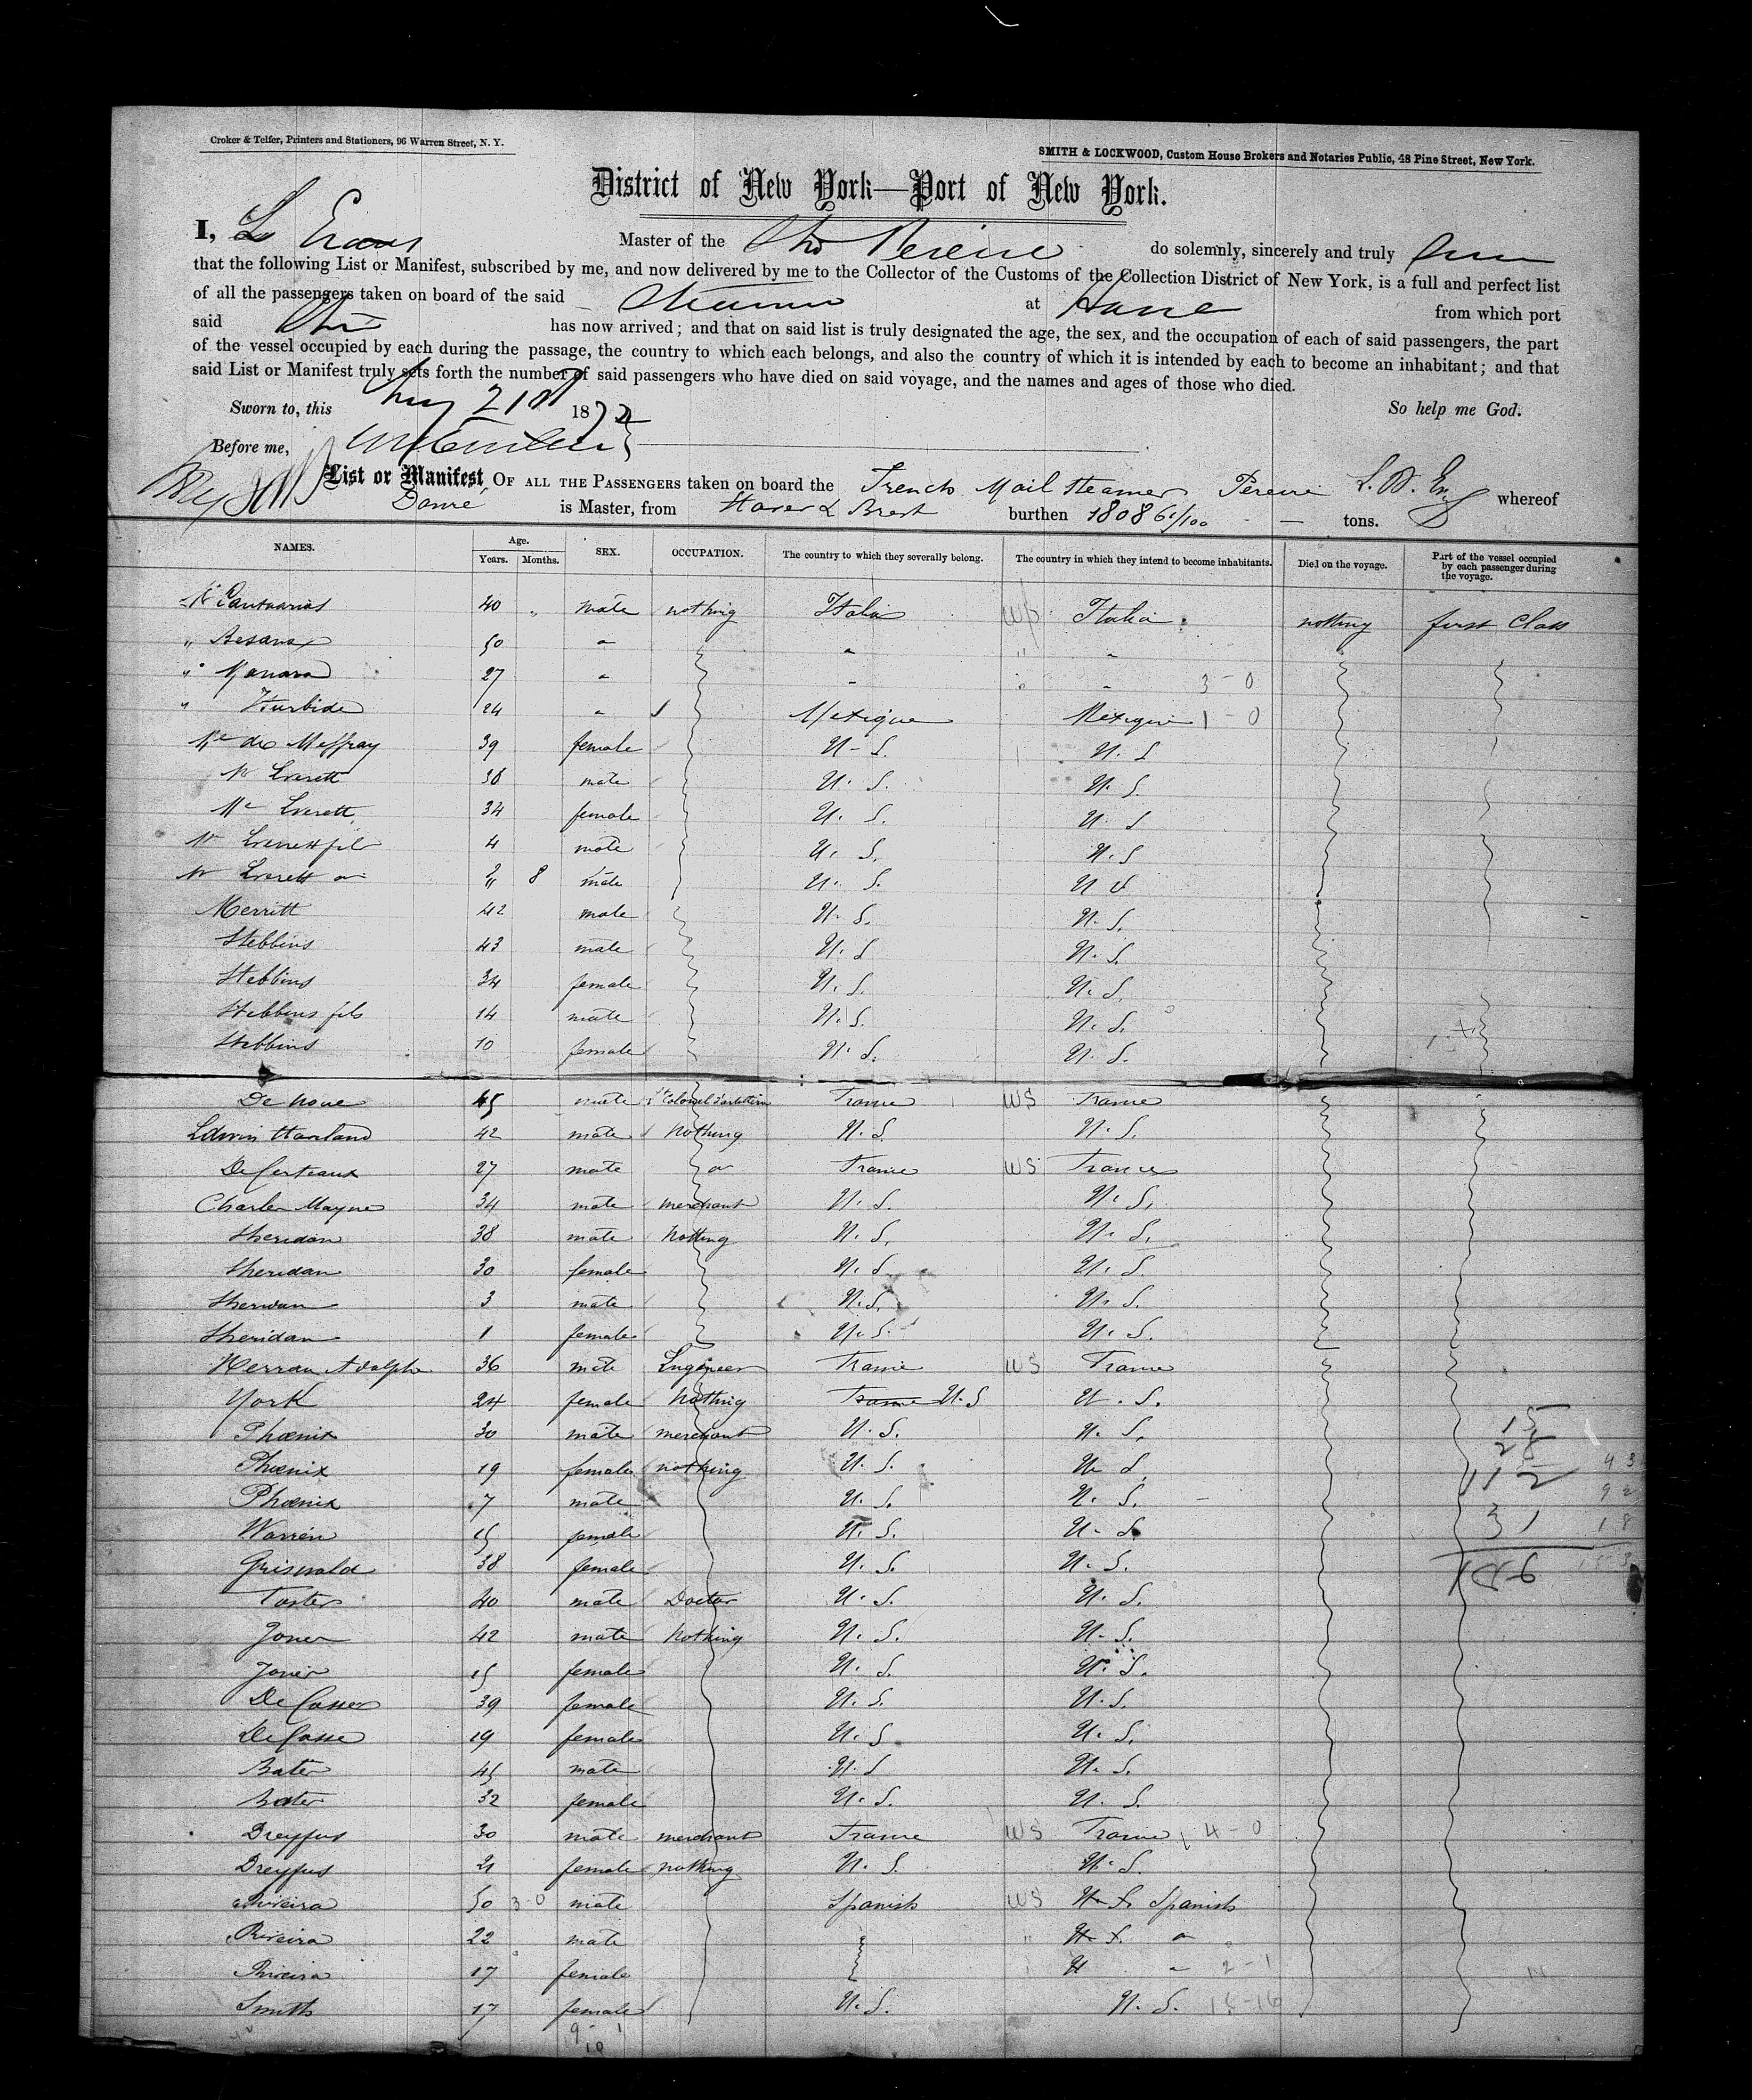 Croker & Telfer, Printers and Stationers, 96 Warren Street, N. Y.
SMITH & LOCKWOOD, Custom House Brokers and Notaries Public, 48 Pine Street, New York.
District of New York—Port of New York.
I, Master of the Pereire do solemnly, sincerely and truly
that the following List or Manifest, subscribed by me, and now delivered by me to the Collector of the Customs of the Collection District of New York, is a full and perfect list
of all the passengers taken on board of the said Steamer at Havre from which port
said has now arrived; and that on said list is truly designated the age, the sex, and the occupation of each of said passengers, the part
of the vessel occupied by each during the passage, the country to which each belongs, and also the country of which it is intended by each to become an inhabitant; and that
said List or Manifest truly sets forth the number of said passengers who have died on said voyage, and the names and ages of those who died.
Sworn to, this 21st 187 So help me God.
Before me,
List or Manifest OF ALL THE PASSENGERS taken on board the French Mail Steamer Pereire whereof
Danré is Master, from Havre & Brest burthen 1808 61/100 tons.
NAMES. Age. Years. Months. SEX. OCCUPATION. The country to which they severally belong. The country in which they intend to become inhabitants. Died on the voyage. Part of the vessel occupied by each passenger during the voyage.
40 " male nothing Italia Italia nothing first Class
" Besana 50 " " "
" Manara 27 " " " 3-0
" Iturbide 24 " Mexique Mexique 1-0
Me de Meffray 39 female U-S. U.S
Mr Everett 36 male U.S. U.S.
Me Everett 34 female U.S. U.S
Mr Everett fils 4 male U.S. U.S
Mr Everett 8 male U.S. U S
Merritt 42 male U.S. U.S.
Stebbins 43 male U.S U.S.
Stebbins 34 female U.S. U.S.
Stebbins fils 14 male U.S. U.S.
Stebbins 10 female U.S. U.S.
De Noue 45 male Lt Colonel d'artillerie France WS France
Edwin Harland 42 male Nothing U.S. U.S.
De Certeaux 27 male " France WS France
Charles Mayne 34 male merchant U.S. U.S.
Sheridan 38 male Nothing U.S. U.S.
Sheridan 30 female U.S. U.S.
Sheridan 3 male U.S. U.S.
Sheridan 1 female U.S. U.S.
Herran Adolphe 36 male Engineer France WS France
York 24 female Nothing France U.S U.S.
Phœnix 30 male merchant U.S. U.S.
Phœnix 19 female nothing U.S. U S
Phœnix 7 male U.S. U.S.
Warren 15 female U.S. U.S.
Griswald 38 female U.S. U.S.
Foster 40 male Doctor U.S. U.S.
Jones 42 male Nothing U.S. U.S.
Jones 15 female U.S. U.S.
De Casse 39 female U.S. U.S.
De Casse 19 female U.S. U.S.
Bates 45 male U.S U.S.
Bates 32 female U.S. U.S.
Dreyfus 30 male merchant France WS France 4-0
Dreyfus 21 female nothing U.S. U.S.
Riveira 50 3-0 male Spanish WS U.S. Spanish
Riveira 22 male U.S. "
Riveira 17 female U " 2-1
Smith 17 female U.S. U.S. 15-16